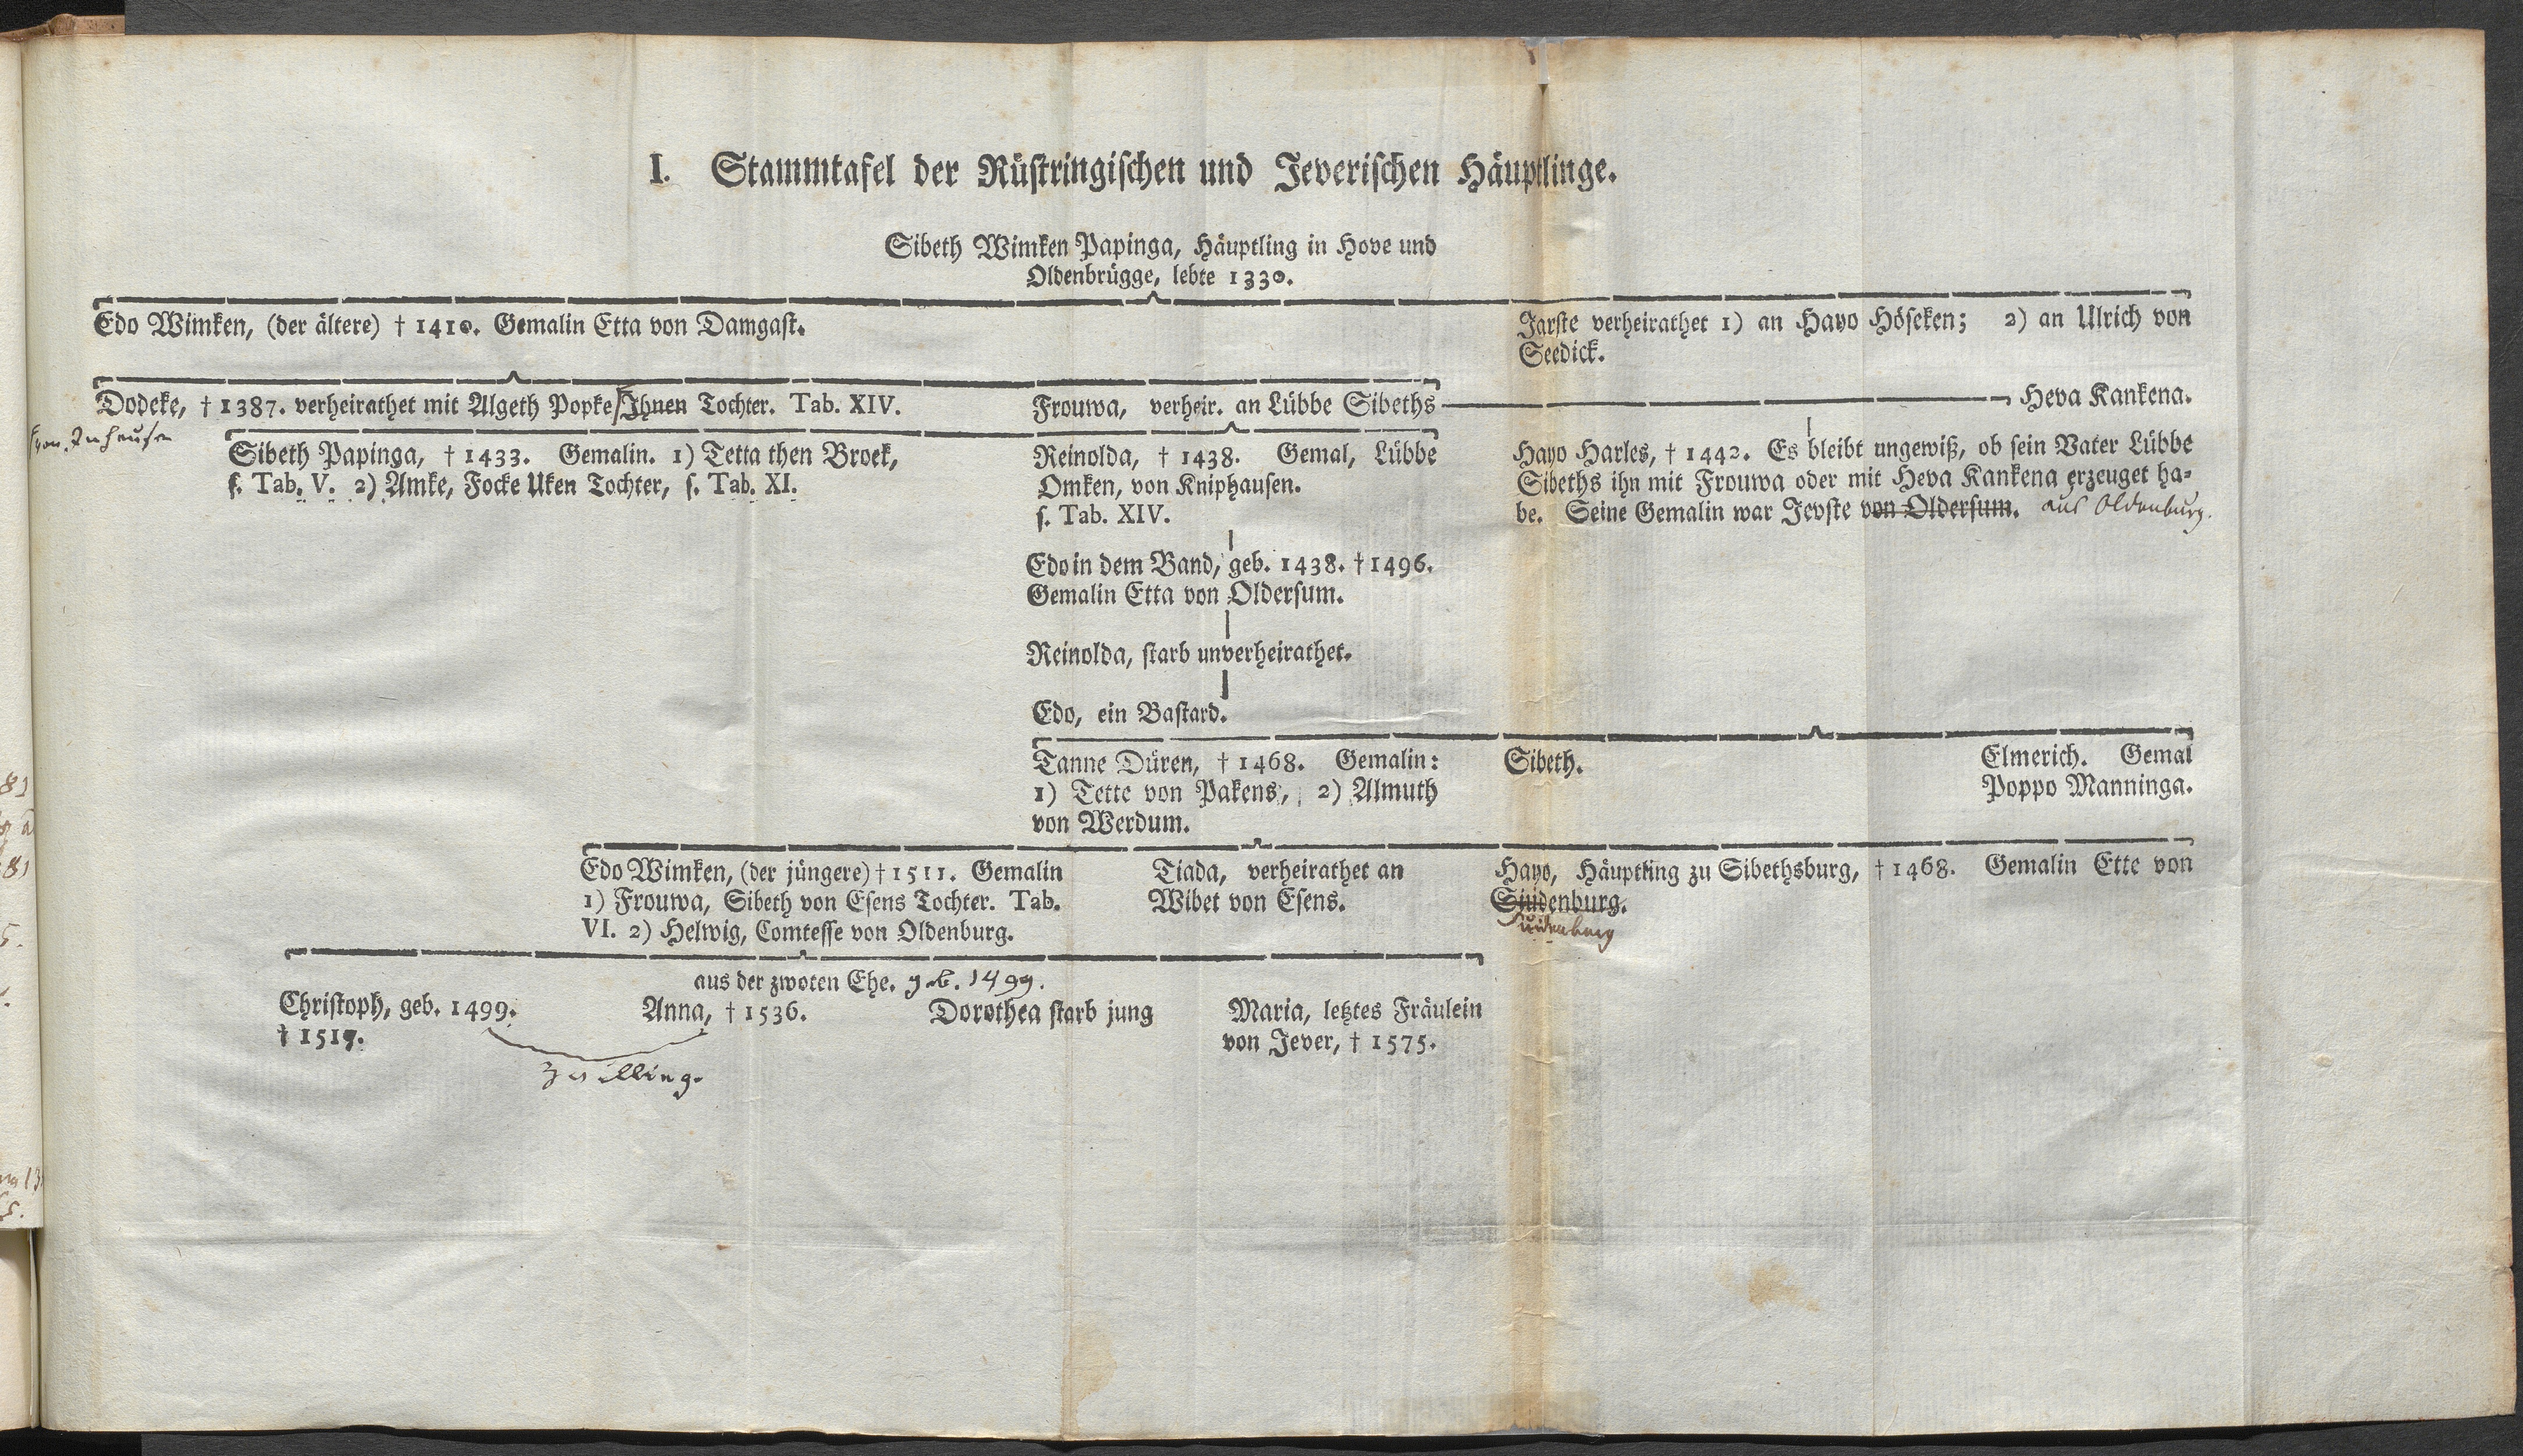 I. Stammtafel der Rüstringischen und Jeverischen Häuptlinge.
Sibeth Wimken Papinga, Häuptling in Hove und
Oldenbrügge, lebte 1330.
Edo Wimken, (der ältere) † 1410. Gemalin Etta von Damgast.
Jarste verheirathet 1) an Hayo Höseken; 2) an Ulrich von
Seedick.
Dodeke, † 1387. verheirathet mit Algeth Popke Ihnen Tochter. Tab. XIV.
von Inhausen
Frouwa, verheir. an Lübbe Sibeths
Heva Kankena.
Sibeth Papinga, † 1433. Gemalin. 1) Tetta then Broek,
s. Tab. V. 2) Amke, Focke Uken Tochter, s. Tab. XI.
Reinolda, † 1438. Gemal, Lübbe
Omken, von Kniphausen.
s. Tab. XIV.
Hayo Harles, † 1442. Es bleibt ungewiß, ob sein Vater Lübbe
Sibeths ihn mit Frouwa oder mit Heva Kankena erzeuget ha-
be. Seine Gemalin war Jevste von Oldersum. aus Oldenburg.
Edo in dem Band, geb. 1438. † 1496.
Gemalin Etta von Oldersum.
Reinolda, starb unverheirathet.
Edo, ein Bastard.
Tanne Düren, † 1468. Gemalin:
1) Tette von Pakens, 2) Almuth
von Werdum.
Sibeth.
Elmerich. Gemal
Poppo Manninga.
Edo Wimken, (der jüngere) † 1511. Gemalin
1) Frouwa, Sibeth von Esens Tochter. Tab.
VI. 2) Helwig, Comtesse von Oldenburg.
Tiada, verheirathet an
Wibet von Esens.
Hayo, Häuptling zu Sibethsburg, † 1468. Gemalin Ette von
aus der zwoten Ehe. geb. 1499.
Christoph, geb. 1499.
† 1517.
Anna, † 1536.
Dorothea starb jung
Maria, letztes Fräulein
von Jever, † 1575.
Zwilling.